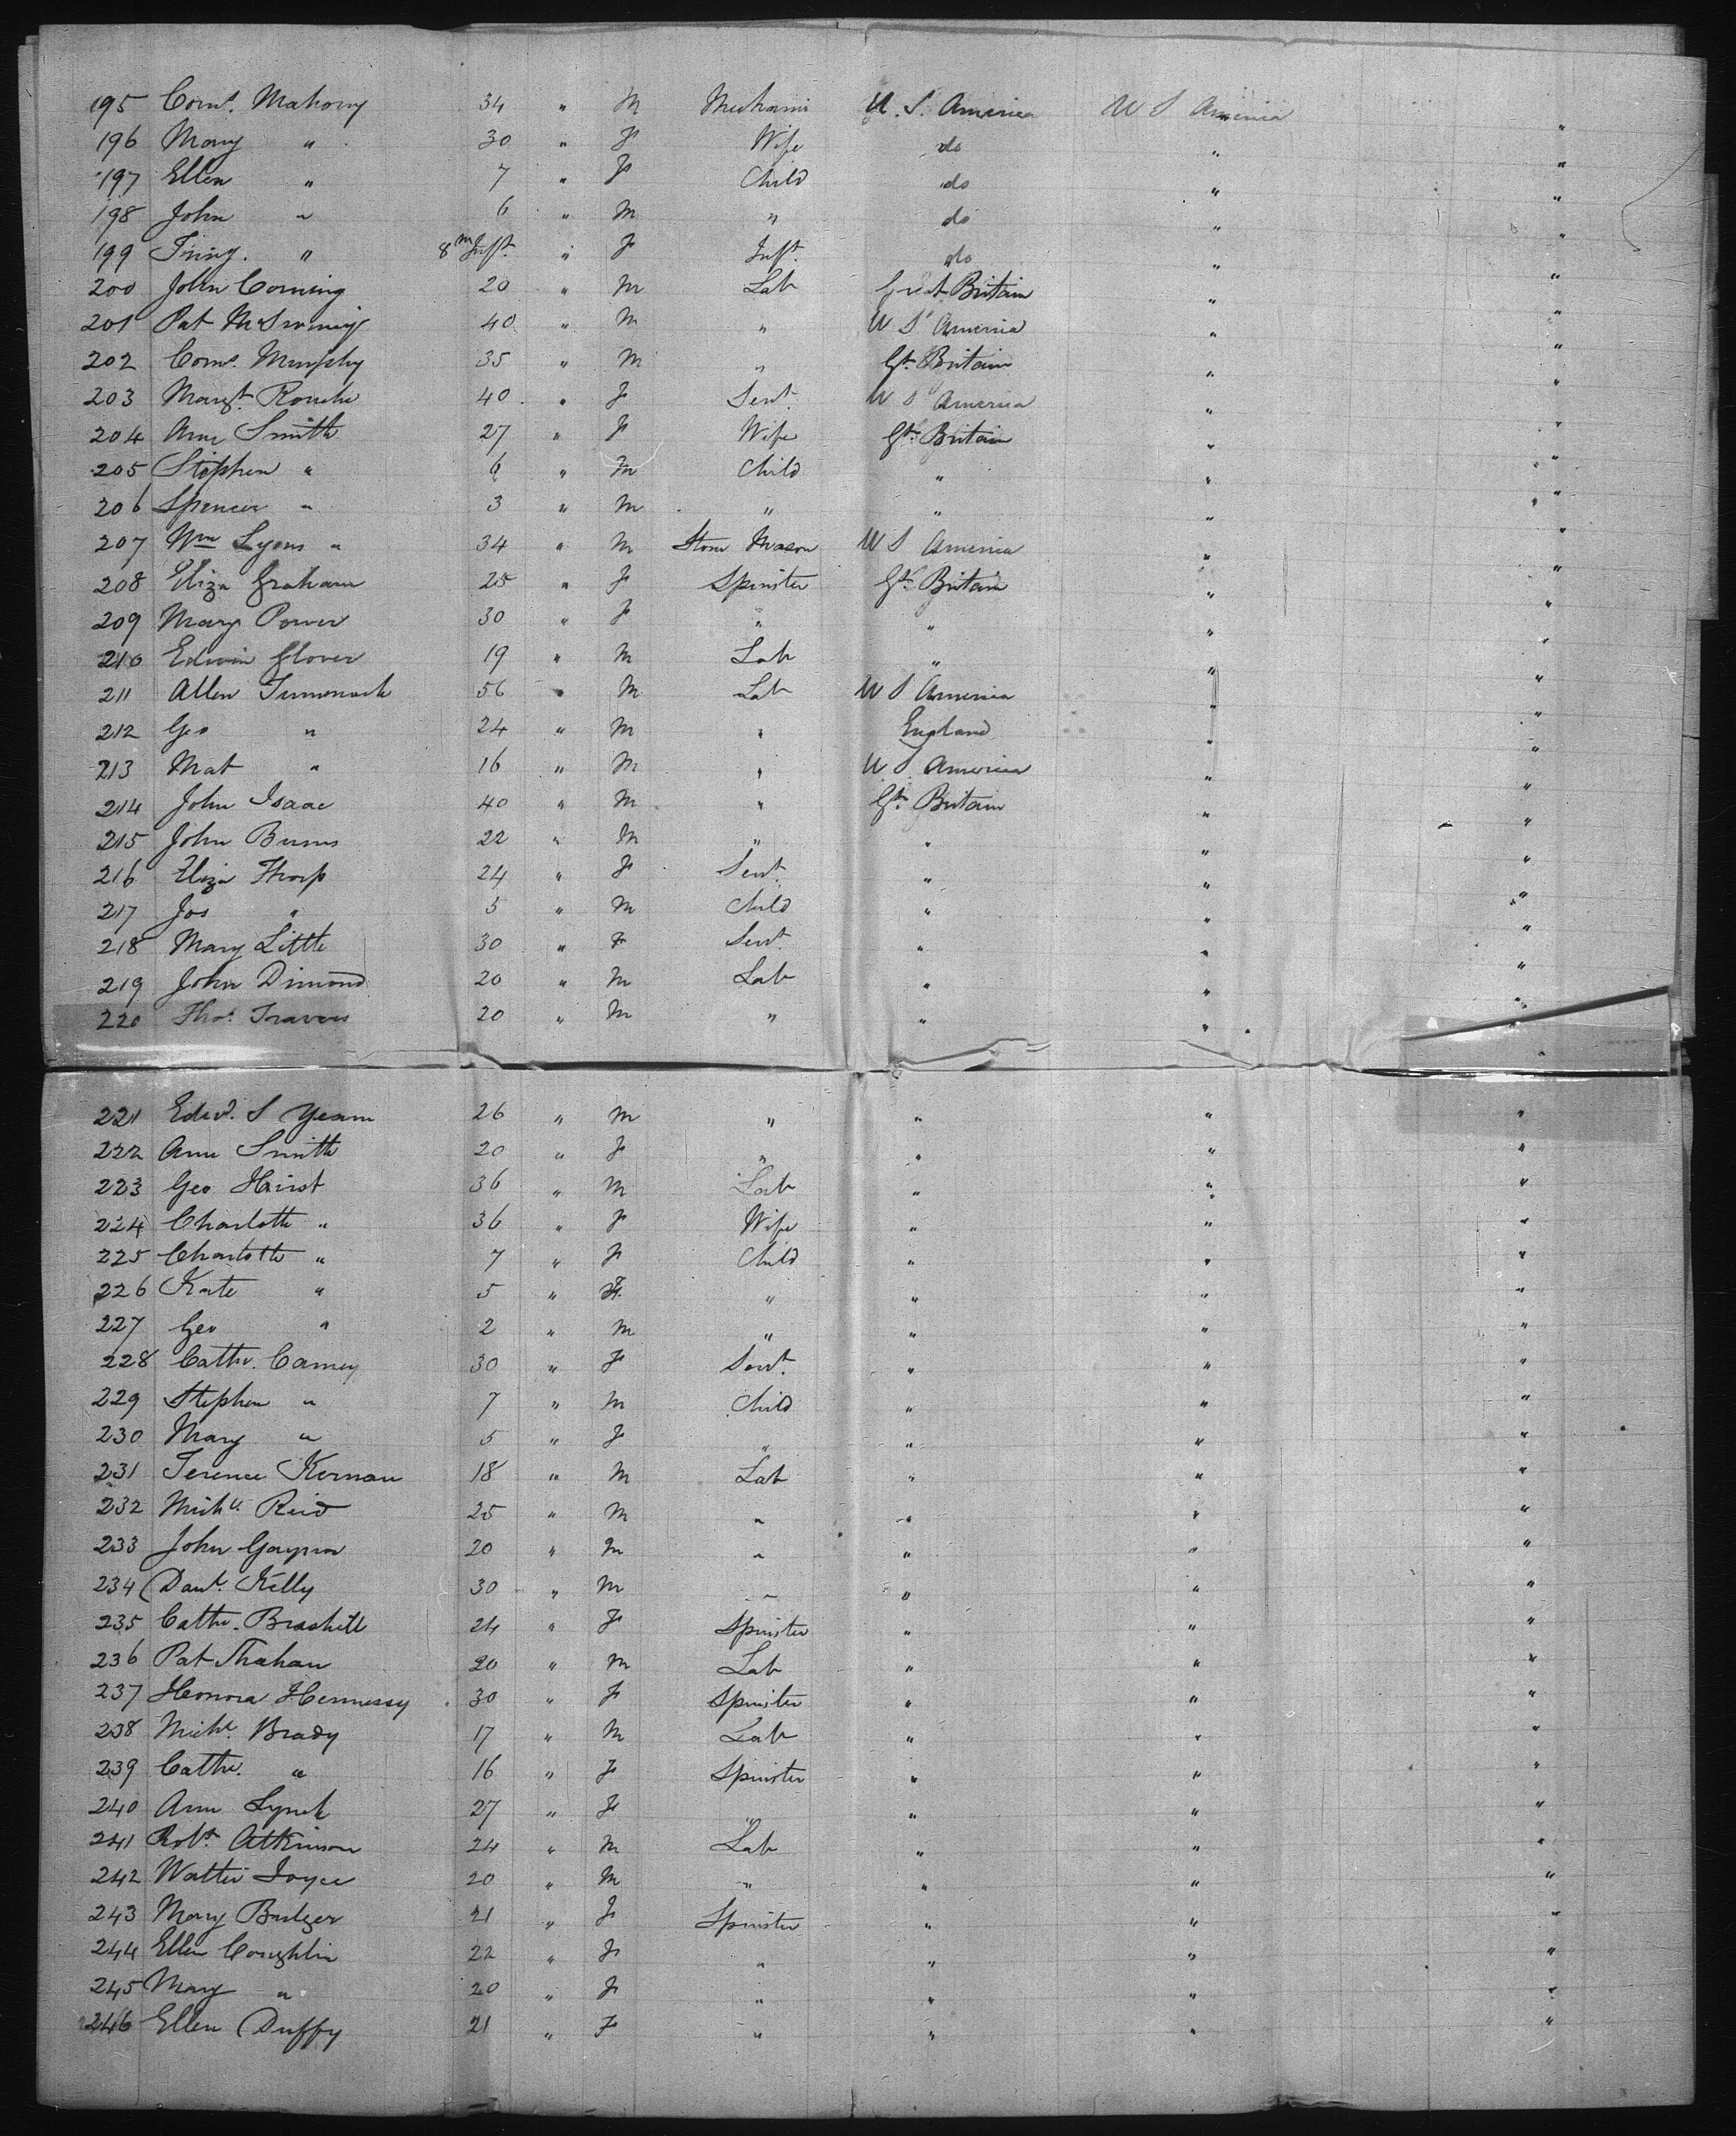 195 Corns. Mahony 34 " M Mechanic U. S. America U S America
196 Mary " 30 " F Wife do " "
197 Ellen " 7 " F Child do " "
198 John " 6 " M " do " "
199 " 8 m Inft. " F Inft. do " "
200 John Corning 20 " M Lab Great Britain " "
201 Pat 40 " M " U S America " "
202 Corns. Murphy 35 " M " Gt. Britain " "
203 Margt. Rourke 40 " F Servt. U S America " "
204 Ann Smith 27 " F Wife Gt. Britain " "
205 Stephen " 6 " M Child " " "
206 Spencer " 3 " M " " " "
207 Wm Lyons " 34 " M Stone Mason U S America " "
208 Eliza Graham 25 " F Spinster Gt. Britain " "
209 Mary Power 30 " F " " " "
210 Edwin Glover 19 " M Lab " " "
211 Allen 56 " M Lab U S America " "
212 Geo " 24 " M " England " "
213 Mat " 16 " M " U. S. America " "
214 John Isaac 40 " M " Gt. Britain " "
215 John Burns 22 " M " " " "
216 Eliza Thorp 24 " F Servt. " " "
217 Jos " 5 " M Child " " "
218 Mary Little 30 " F Servt. " " "
219 John Dimond 20 " M Lab " " "
220 Thos. Travers 20 " M " " " "
221 Edwd. S Yeam 26 " M " " " "
222 Ann Smith 20 " F " " " "
223 Geo Hirst 36 " M Lab " " "
224 Charlotte " 36 " F Wife " " "
225 Charlotte " 7 " F Child " " "
226 Kate " 5 " F. " " " "
227 Geo " 2 " M " " " "
228 Cathe. Carney 30 " F Servt. " " "
229 Stephen " 7 " M Child " " "
230 Mary " 5 " F " " " "
231 Terence Kernan 18 " M Lab " " "
232 Michl. Reid 25 " M " " " "
233 John 20 " M " " " "
234 Danl. Kelly 30 " M " " " "
235 Cathe. 24 " F Spinster " " "
236 Pat 20 " M Lab " " "
237 Honora Hennessy 30 " F Spinster " " "
238 Michl. Brady 17 " M Lab " " "
239 Cathe. " 16 " F Spinster " " "
240 Ann Lynch 27 " F " " " "
241 Robt. Atkinson 24 " M Lab " " "
242 Walter Joyce 20 " M " " " "
243 Mary 21 " F Spinster " " "
244 Ellen Coughlin 22 " F " " " "
245 Mary " 20 " F " " " "
246 Ellen Duffy 21 " F " " " "